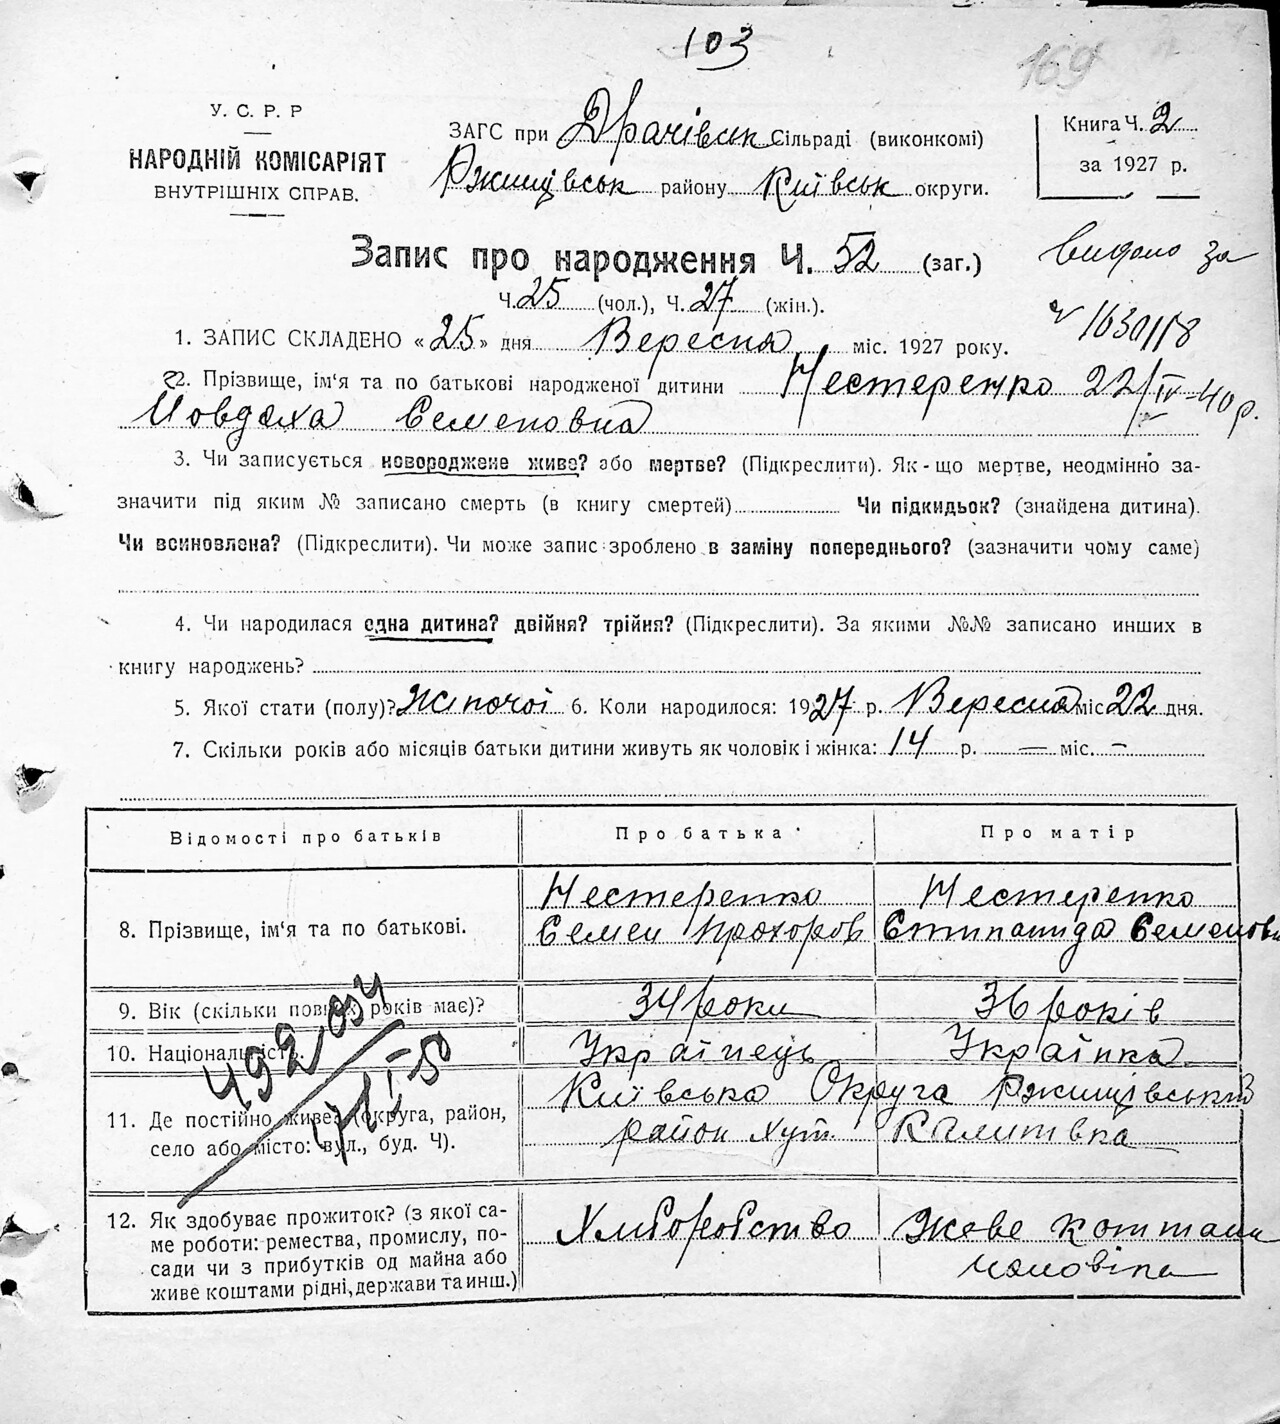 103
169
У. С. Р. Р
НАРОДНІЙ КОМІСАРІЯТ
ВНУТРІШНІХ СПРАВ.
ЗАГС при Драчівськ Сільраді (виконкомі)
Ржищівськ району Київськ округи.
Книга Ч. 2
за 1927 р.
Запис про народження Ч. 52 (заг.)
Ч. 25 (чол.), Ч. 27 (жін.).
видано за
№ 1630118
22/IV-40 р.
1. ЗАПИС СКЛАДЕНО «25» дня Вересня міс. 1927 року.
2. Прізвище, ім'я та по батькові народженої дитини Нестеренко
Йовдоха Семеновна
3. Чи записується новороджене живе? або мертве? (Підкреслити). Як-що мертве, неодмінно за-
значити під яким № записано смерть (в книгу смертей) Чи підкидьок? (знайдена дитина).
Чи всиновлена? (Підкреслити). Чи може запис зроблено в заміну попереднього? (зазначити чому саме)
4. Чи народилася одна дитина? двійня? трійня? (Підкреслити). За якими №№ записано инших в
книгу народжень?
5. Якої стати (полу)? Жіночої 6. Коли народилося: 1927 р. Вересня міс 22 дня.
7. Скільки років або місяців батьки дитини живуть як чоловік і жінка: 14 р. — міс. —
Відомості про батьків Про батька Про матір
8. Прізвище, ім'я та по батькові.
Нестеренко
Семен Прохоров
Нестеренко
Степанида Семенов
9. Вік (скільки повних років має)? 34 роки 36 років
10. Національність. Українець Українка
11. Де постійно живе? (округа, район,
село або місто: вул., буд. Ч).
Київська Округа Ржищівський
район Хут. Калитвка
12. Як здобуває прожиток? (з якої са-
ме роботи: ремества, промислу, по-
сади чи з прибутків од майна або
живе коштами рідні, держави та инш.)
Хліборобство
Жеве коштами
чоловіка
492094